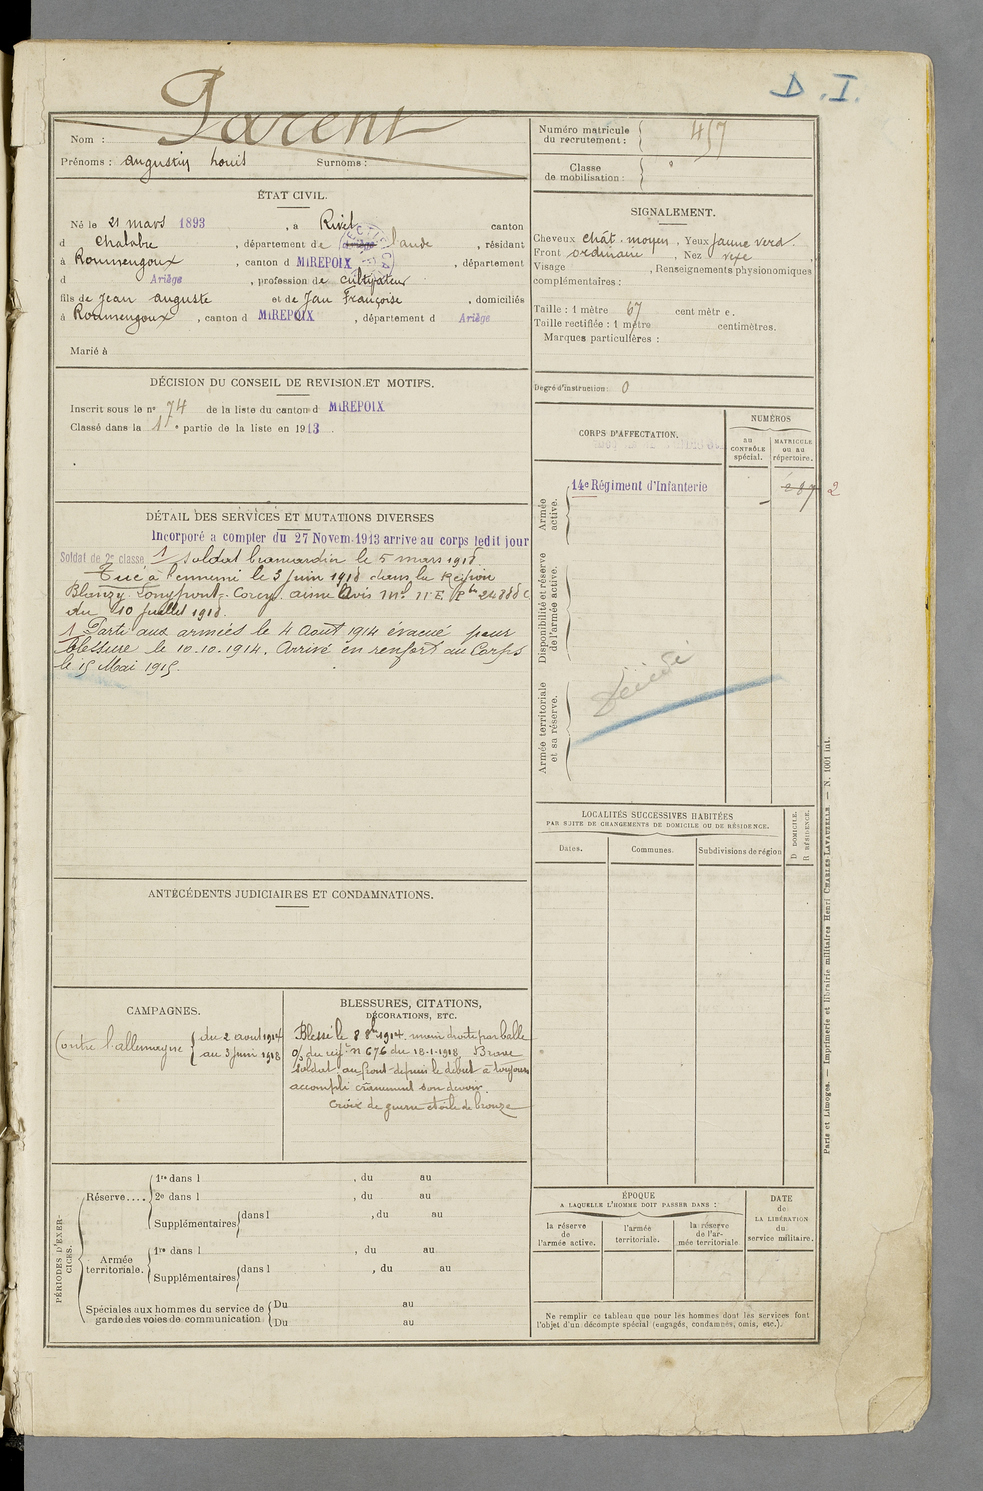 D.I.
Parent
Nom :
Prénoms : augustin Louis Surnoms :
Numéro matricule
du recrutement : 457
Classe
de mobilisation :
ÉTAT CIVIL.
Né le 21 mars 1893, à Rivel canton
d Chalabre, département de l'aude, résidant
à Roumengoux, canton d MIREPOIX, département
d Ariège, profession de cultivateur
fils de Jean auguste et de Jau Françoise, domiciliés
à Roumengoux, canton d MIREPOIX, département d Ariège
Marié à
SIGNALEMENT.
Cheveux chât. moyen, Yeux jaune verd.
Front ordinaire, Nez vexe,
Visage , Renseignements physionomiques
complémentaires :
Taille : 1 mètre 67 centimètre.
Taille rectifiée : 1 mètre centimètres.
Marques particulières :
Degré d'instruction : 0
DÉCISION DU CONSEIL DE REVISION ET MOTIFS.
Inscrit sous le n° 74 de la liste du canton d MIREPOIX
Classé dans la 1e partie de la liste en 1913.
CORPS D'AFFECTATION.
NUMÉROS
au
CONTRÔLE
spécial.
MATRICULE
ou au
répertoire.
Armée
active.
14e Régiment d'Infanterie
2
Disponibilité et réserve
de l'armée active.
Armée territoriale
et sa réserve.
Décédé
DÉTAIL DES SERVICES ET MUTATIONS DIVERSES
Incorporé a compter du 27 Novem. 1913 arrive au corps ledit jour
Soldat de 2e classe, 1 Soldat brancardier le 5 mars 1918
Tué à l'ennemi le 3 Juin 1918 dans la Région
Blanzy. Longpont. Corcy. aisne Avis Mel
du 10 Juillet 1918.
1 Parti aux armées le 4 Août 1914 évacué pour
blessure le 10.10.1914. Arrivé en renfort au Corps
le 15 Mai 1915.
LOCALITÉS SUCCESSIVES HABITÉES
PAR SUITE DE CHANGEMENTS DE DOMICILE OU DE RÉSIDENCE.
Dates.
Communes.
Subdivisions de région
D DOMICILE.
R RÉSIDENCE.
ANTÉCÉDENTS JUDICIAIRES ET CONDAMNATIONS.
CAMPAGNES.
Contre l'allemagne { du 2 aout 1914
au 3 juin 1918
BLESSURES, CITATIONS,
DÉCORATIONS, ETC.
Blessé le 8 8bre 1914. main droite par balle
o/s du regt n 676 du 18-1-1918, Brave
soldat au front depuis le début a toujours
accompli crânement son devoir.
Croix de guerre étoile de bronze
PÉRIODES D'EXER-
CICES.
Réserve....
1re dans l , du au
2e dans l , du au
Supplémentaires { dans l , du au
Armée
territoriale.
1re dans l , du au
Supplémentaires { dans l , du au
Spéciales aux hommes du service de
garde des voies de communication.
Du au
Du au
ÉPOQUE
A LAQUELLE L'HOMME DOIT PASSER DANS :
la réserve
de
l'armée active.
l'armée
territoriale.
la réserve
de l'ar-
mée territoriale
DATE
de
LA LIBÉRATION
du
service militaire.
Ne remplir ce tableau que pour les hommes dont les services font
l'objet d'un décompte spécial (engagés, condamnés, omis, etc.).
Paris et Limoges. — Imprimerie et librairie militaires Henri CHARLES-LAVAUZELLE. — N. 1001 int.